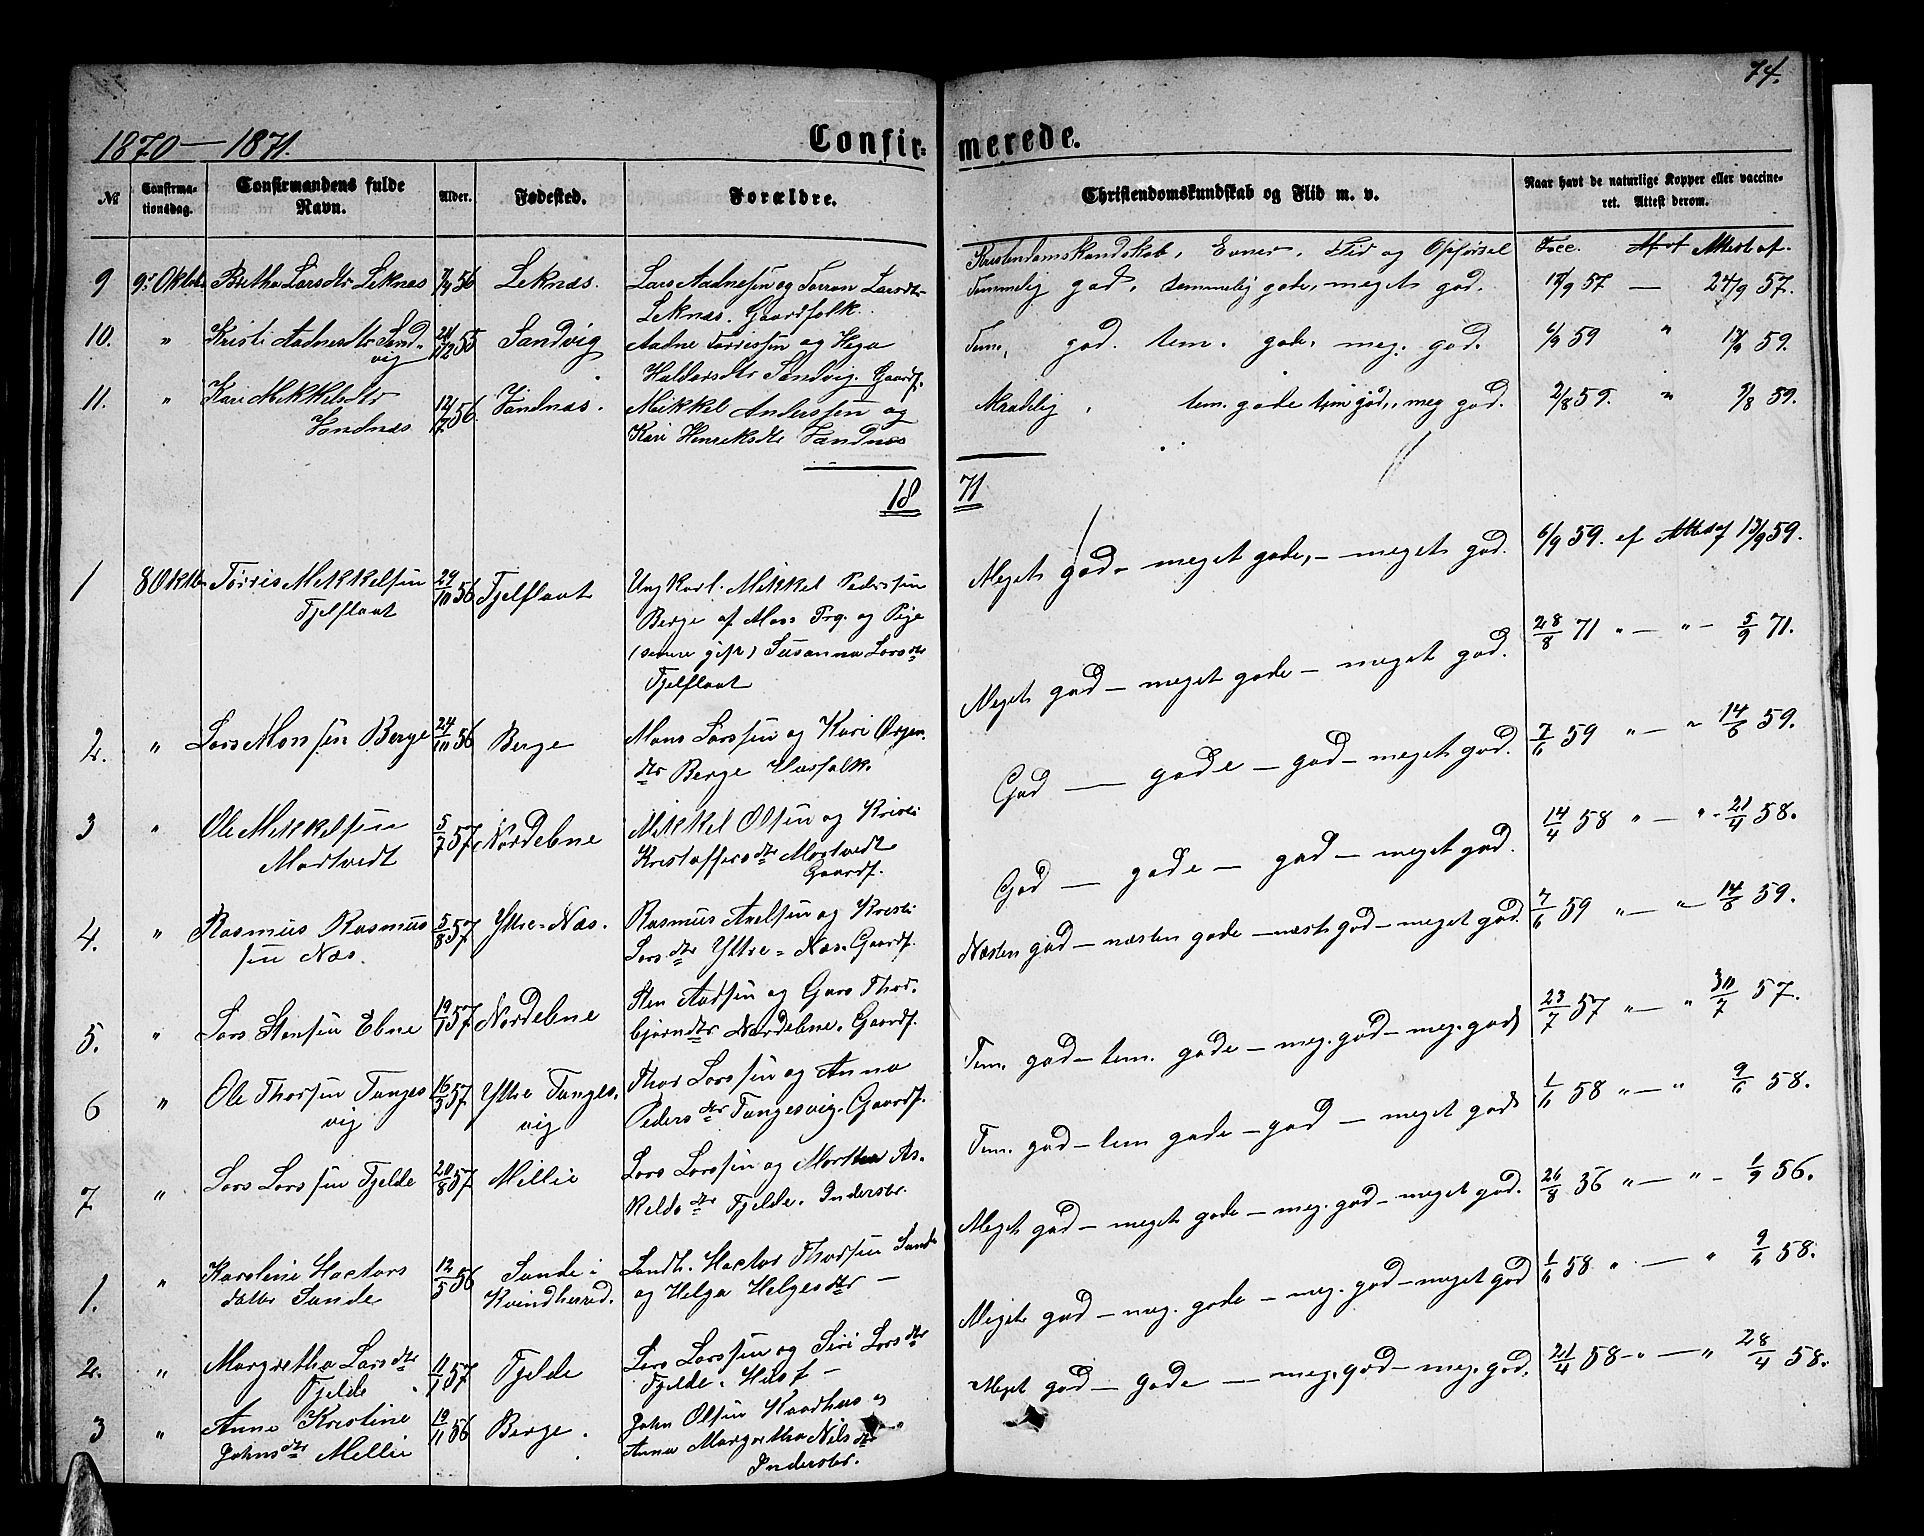 74.
1870 — 1871.
Confir-
merede.
№
Confirma-
tionsdag.
Confirmandens fulde
Navn.
Alder.
Fødested.
Forældre.
Christendomskundskab og Flid m. v.
Naar havt de naturlige Kopper eller vaccine-
ret. Attest derom.
Kristendomskundskab, Evner, Flid og Opførsel
Vacc. Attest af
9 9' Oktob Larsdtr Leknæs 56 Leknæs. Lars Aadnesen og Larsdtr
Leknæs. Gaardfolk.
Temmelig god, temmelig gode, meget god. 57 — 24/9 57.
10. " Kristi Aadnesdtr Sand-
vig 55 Sandvig Aadne Torressen og Hega
Haldorsdtr Sandvig. Gaardf.
Tem, god. tem. gode, meg. god. 6/9 59 " 13/9 59.
11. " Kari Mikkelsdtr
Vandnæs 56. Vandnæs. Mikkel Anderssen og
Kari Henriksdtr Vandnæs
tem. gode tem god, meg god. 2/8 59. " 9/8 59.
18 71
1 8 Oktbr Tørris Mikkelsen
Fjelflaat 24/10 56 Fjelflaat Ungkarl. Mikkel Pederssen
Berge af Mos Prg. og Pige
(senere gift) Susanna Larsdtr
Fjelflaat
Meget god — meget gode, — meget god. 6/9 59. ef Att. af 13/9 59.
2. " Lars Monssen Berge 24/10 56 Berge Mons Larssen og Kari Ørjan-
dtr Berge Huusfolk.
Meget god — meget gode — meget god. 28/8 71 " — " — 5/9 71.
3 " Ole Mikkelsen
Mortvedt 5/7 57 Nordebne Mikkel Olsen og Kristi
Kristoffersdtr Mortvedt
Gaardf.
God — gode — god — meget god. 7/6 59 " — " 14/6 59.
4. " Rasmus Rasmus
sen Næs. 5/8 57 Ytre-Næs. Rasmus Axelsen og Kristi
Larsdtr Yttre-Næs. Gaardf.
God — gode — god — meget god. 14/4 58 " — " - 21/4 58.
5. " Lars Stensen Ebne 19/1 57 Nordebne Sten Aadsen og Guro Thor-
bjørndtr Nordebne. Gaardf.
Næsten god — næsten gode — næst god — meget god. 7/6 59 " — " 14/6 59.
6 " Ole Thorsen Tunges
vig 16/3 57 Yttre Tunges.
vig Thor Larssen og Anna
Pedersdtr Tungesvig. Gaardf.
Tem. god — tem. gode — meg. god — meg. god 23/7 57 " — " 30/7 57.
7 " Lars Larssen Fjelde 20/8 57 Mellie Lars Larssen og Martha As-
keldsdtr Fjelde. Inderstr.
Tem. god — tem gode — god — meget god 1/6 58 " — " 9/6 58.
1. " Karoline Hactors
datter Sande 12/5 56 Sande i
Kvindherred. Landh. Hactor Thorsen Sande
og Helga Helgesdtr —
Meget god — meget gode — meg. god — meget god. 26/8 56 " — " - 1/9 56.
2. " Margretha Larsdtr
Fjelde 11/1 57 Fjelde Lars Larssen og Siri Larsdtr
Fjelde. Husf —
Meget god — meg. gode — meg. god — meget god 1/6 58 " — " 9/6 58.
3 " Anna Kristine
Johnsdtr Mellie 19/11 56 Berge. John Olsen Haarhus og
Anna Margretha Nilsdtr
Inderstr.
Meget god — gode — meg. god — meg. god. 21/4 58 - " — " 28/4 58.